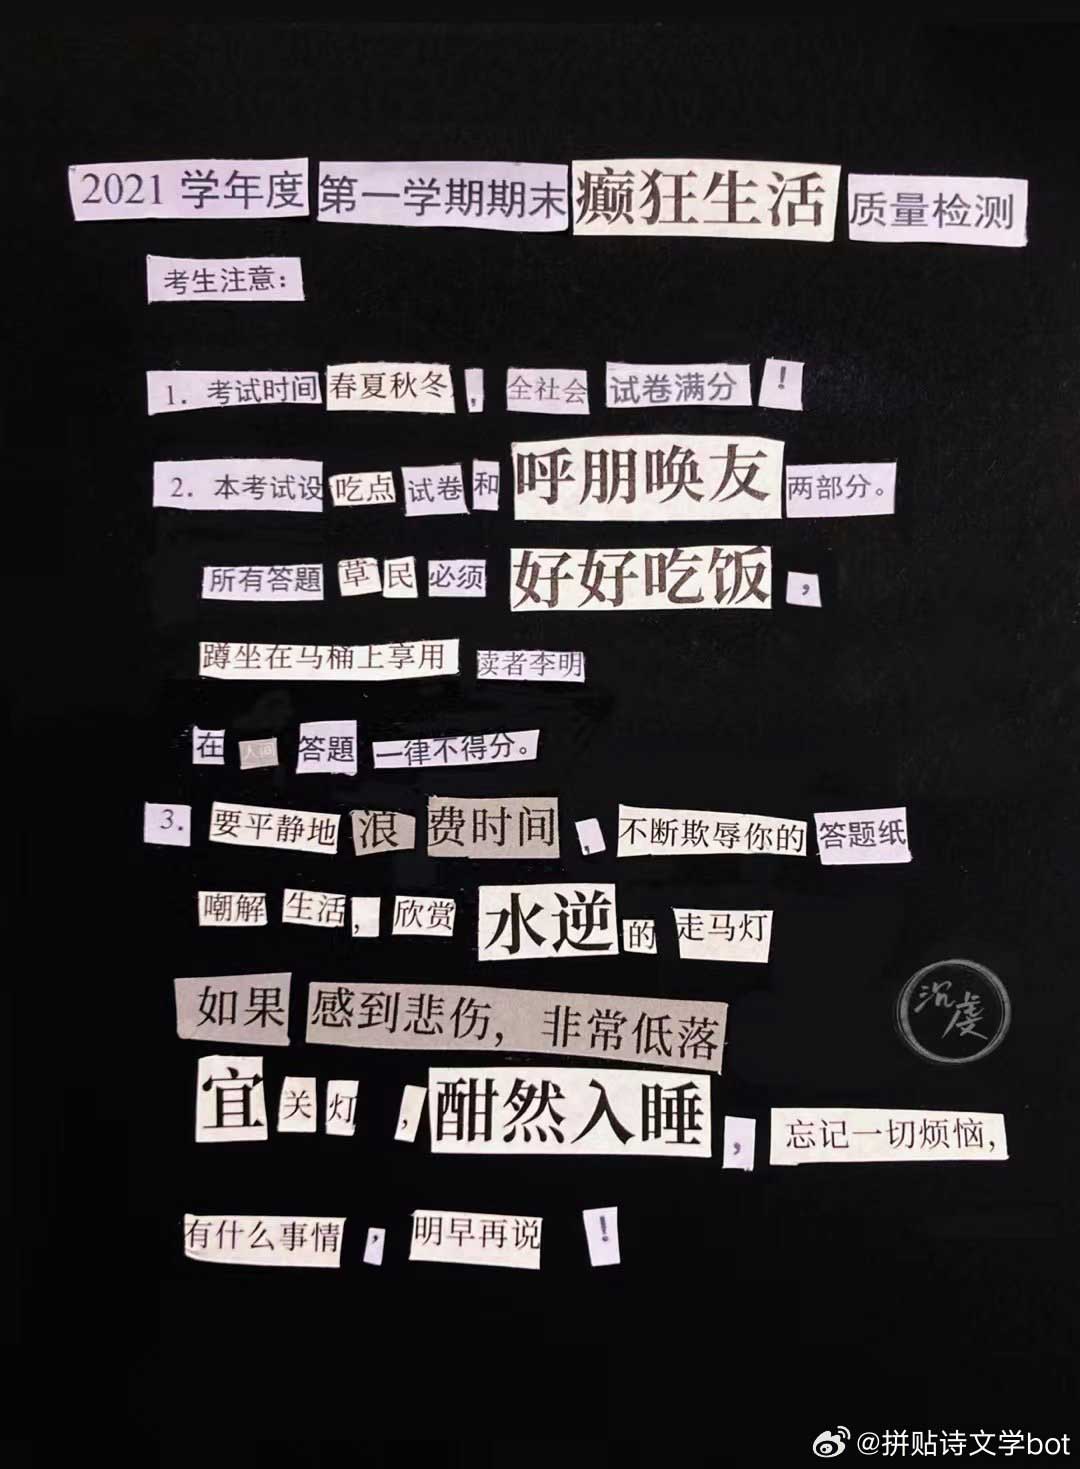 2021 学年度 第一学期期末 癫狂生活 质量检测
考生注意：
1. 考试时间 春夏秋冬，全社会 试卷满分！
2. 本考试设 吃点 试卷 和 呼朋唤友 两部分。
所有答題 草民 必须 好好吃饭，
蹲坐在马桶上享用 读者李明
在 人间 答題 一律不得分。
3. 要平静地 浪费时间，不断欺辱你的 答题纸
嘲解 生活，欣赏 水逆 的 走马灯
如果 感到悲伤，非常低落
宜 关灯，酣然入睡，忘记一切烦恼，
有什么事情，明早再说！
沉虔
@拼贴诗文学bot